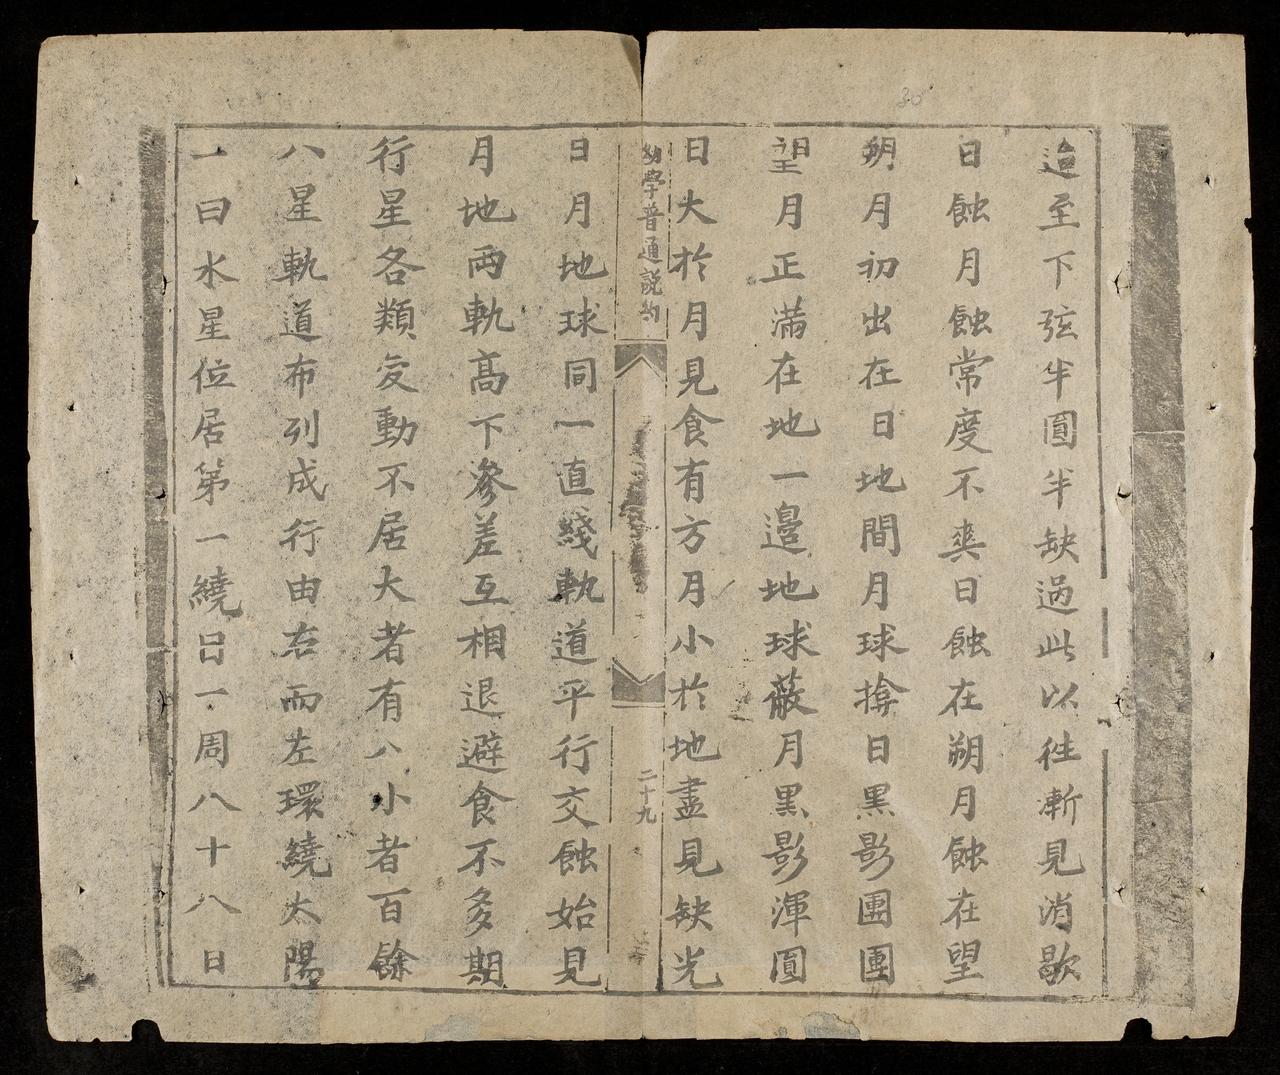 迨至下弦半圓半缺過此以往漸見消歇
日蝕月蝕常度不爽日蝕在朔月蝕在望
朔月初出在日地間月球揜日黑影團團
望月正滿在地一邊地球蔽月黑影渾圓
日大於月見食有方月小於地盡見缺光
幼學普通説約
二十九
日月地球同一直綫軌道平行交蝕始見
月地両軌高下參差互相退避食不多期
行星各類変動不居大者有八小者百餘
八星軌道布列成行由右而左環繞太陽
一曰水星位居第一繞日一周八十八日
30